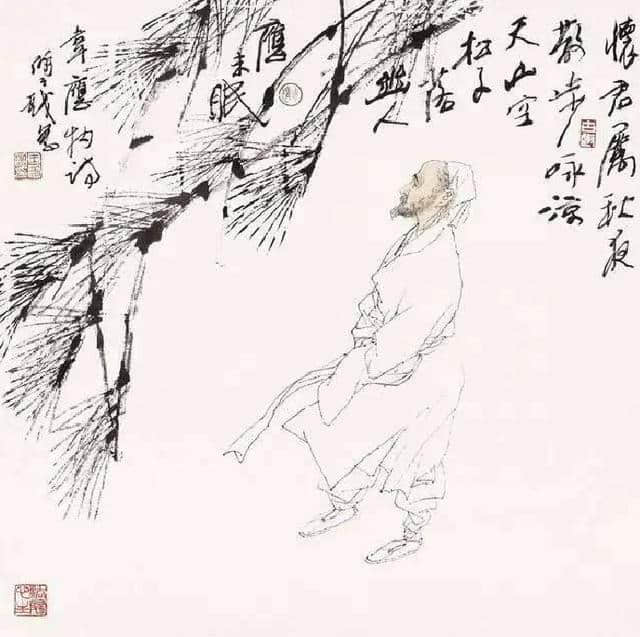 懷君屬秋夜
散步咏凉
天山空
松子
落
幽人
應
未眠
韋應物詩